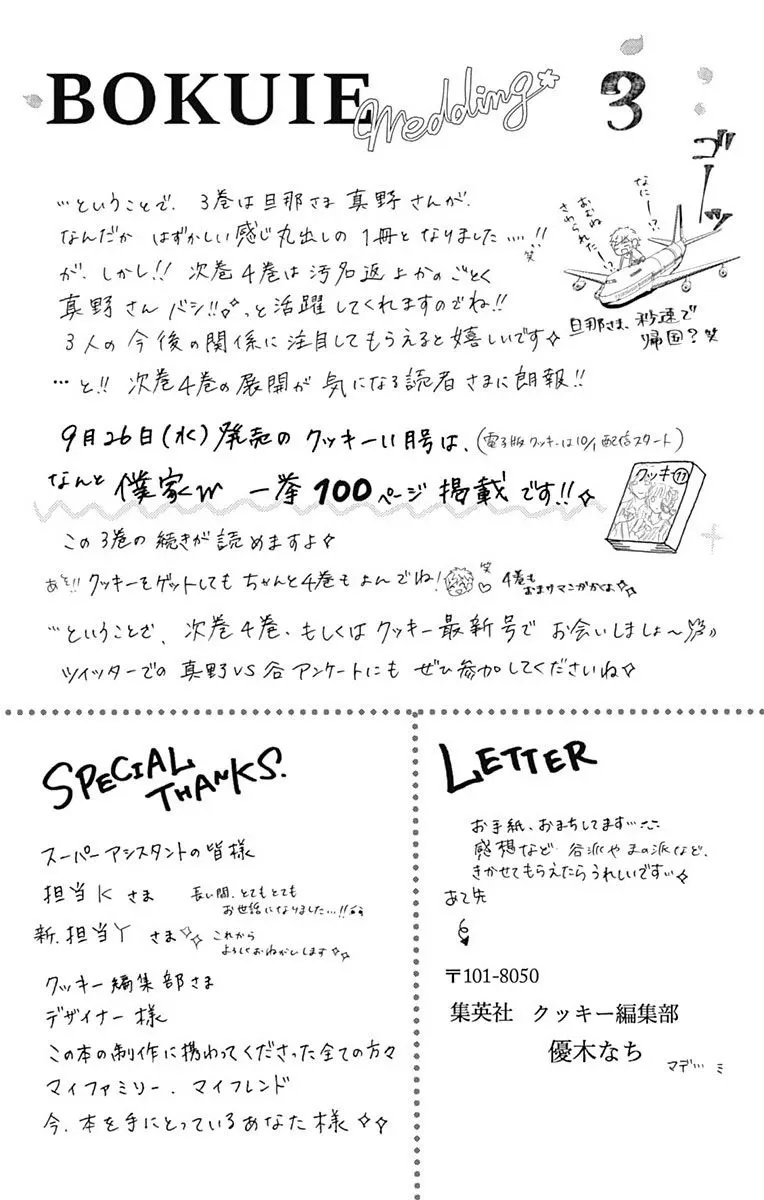 BOKUIE Wedding 3
…ということで、3巻は旦那さま真野さんが、
なんだか はずかしい感じ丸出しの1冊となりました….!!笑
が、しかし!! 次巻4巻は汚名返上かのごとく
真野さんバシ!!っ、と活躍してくれますのでね!!
3人の今後の関係に注目してもらえると嬉しいです
…と!! 次巻4巻の展開が気になる読者さまに朗報!!
なにー!?
おむね
さわられたー!?
ゴーッ
旦那さま、秒速で
帰国?笑
9月26日(水)発売のクッキー11月号は、(電子版クッキーは10/1配信スタート)
なんと僕家w 一挙100ページ掲載です!!
クッキー 11
この3巻の続きが読めますよ
あそ!! クッキーをゲットしてもちゃんと4巻もよんでね!笑 4巻も
おまけマンガかくよ
…ということで、次巻4巻、もしくはクッキー最新号でお会いしましょ〜
ツイッターでの真野VS谷アンケートにもぜひ参加してくださいね
SPECIAL
THANKS.
スーパーアシスタントの皆様
担当Kさま 長い間、とてもとても
お世話になりました…!!
新.担当Yさま これから
よろしくおねがいします
クッキー編集部さま
デザイナー様
この本の制作に携わってくださった全ての方々
マイファミリー、マイフレンド
今、本を手にとっているあなた様
LETTER
お手紙、おまちしてます…
感想など 谷派やまの派など、
きかせてもらえたらうれしいです…
あて先
〒101-8050
集英社 クッキー編集部
優木なち
マデ…ミ